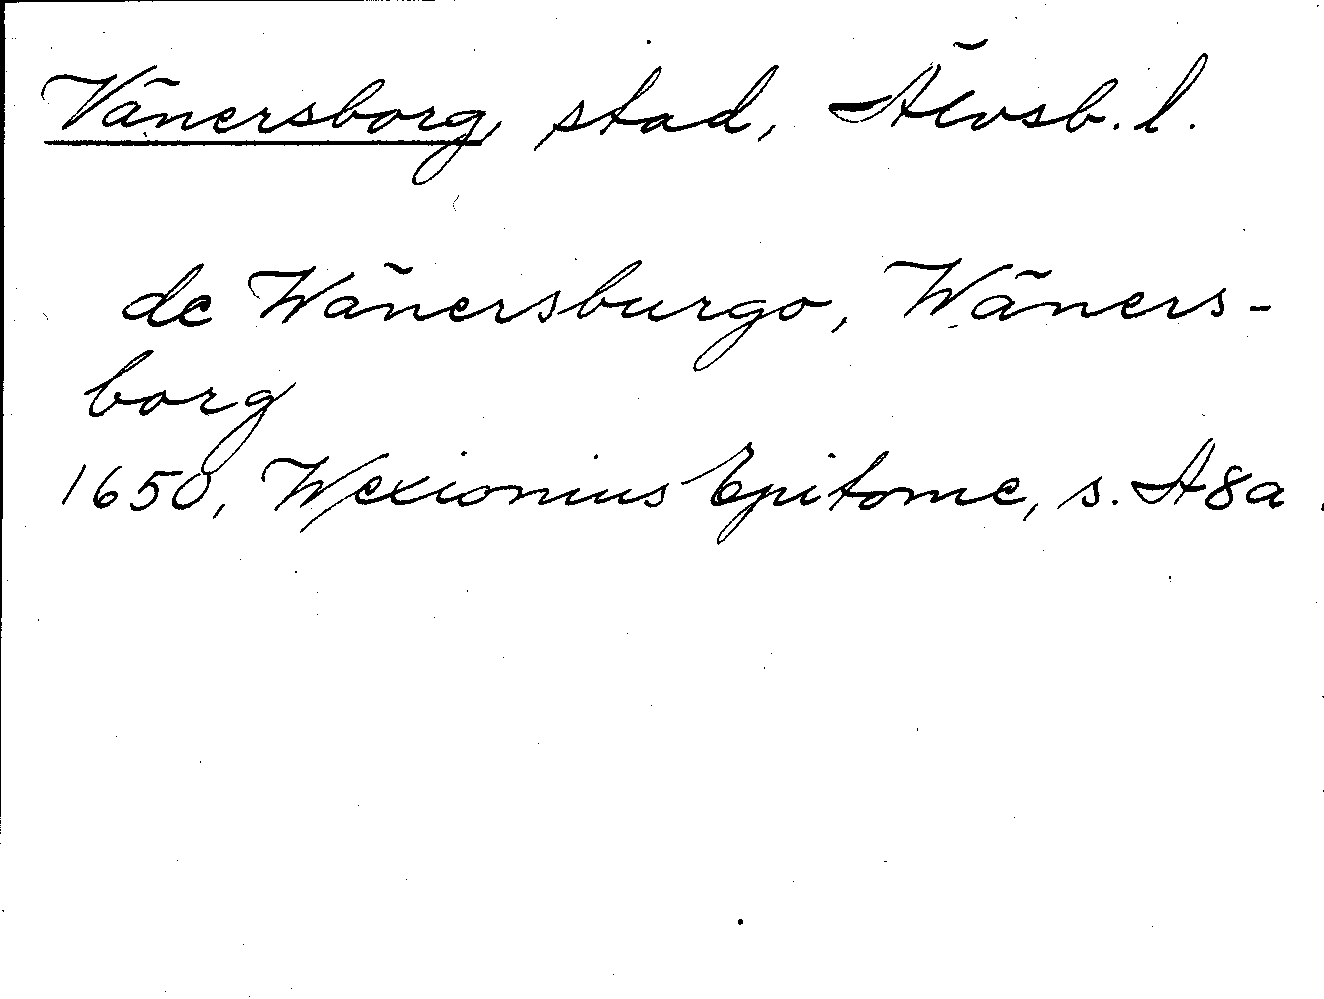 Vänersborg, stad, Älvsb. l.
de Wänersburgo, Wäners-
borg
1650, Wexionius Epitome, s. A8a.